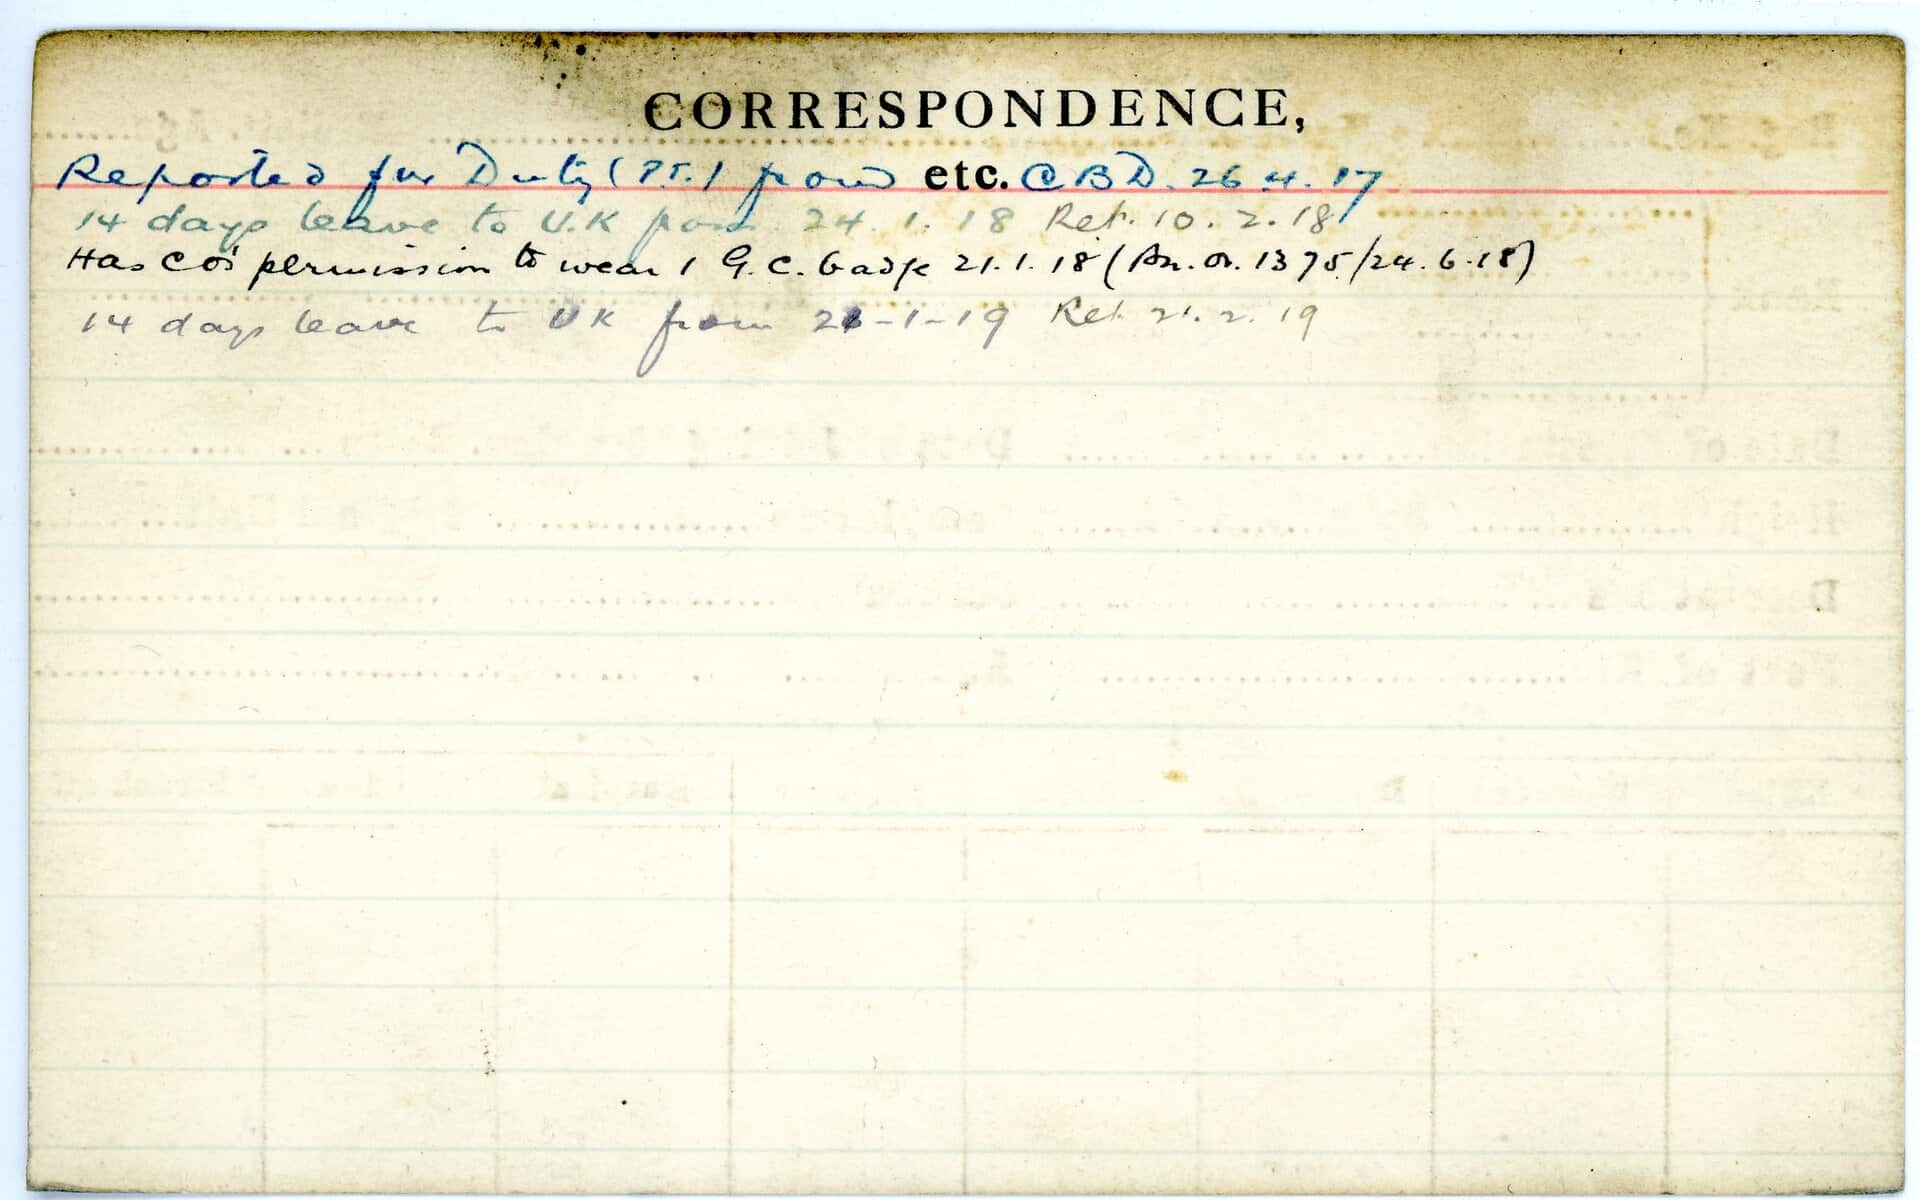 CORRESPONDENCE,
Reported for Duty (P.T.) from etc. CBD. 26.4.17
14 days leave to U.K from 24.1.18 Ret. 10.2.18
Has CO's permission to wear 1 G.C. badge 21.1.18 (An. Or. 1375/24.6.18)
14 days leave to UK from 21-1-19 Ret 21.2.19